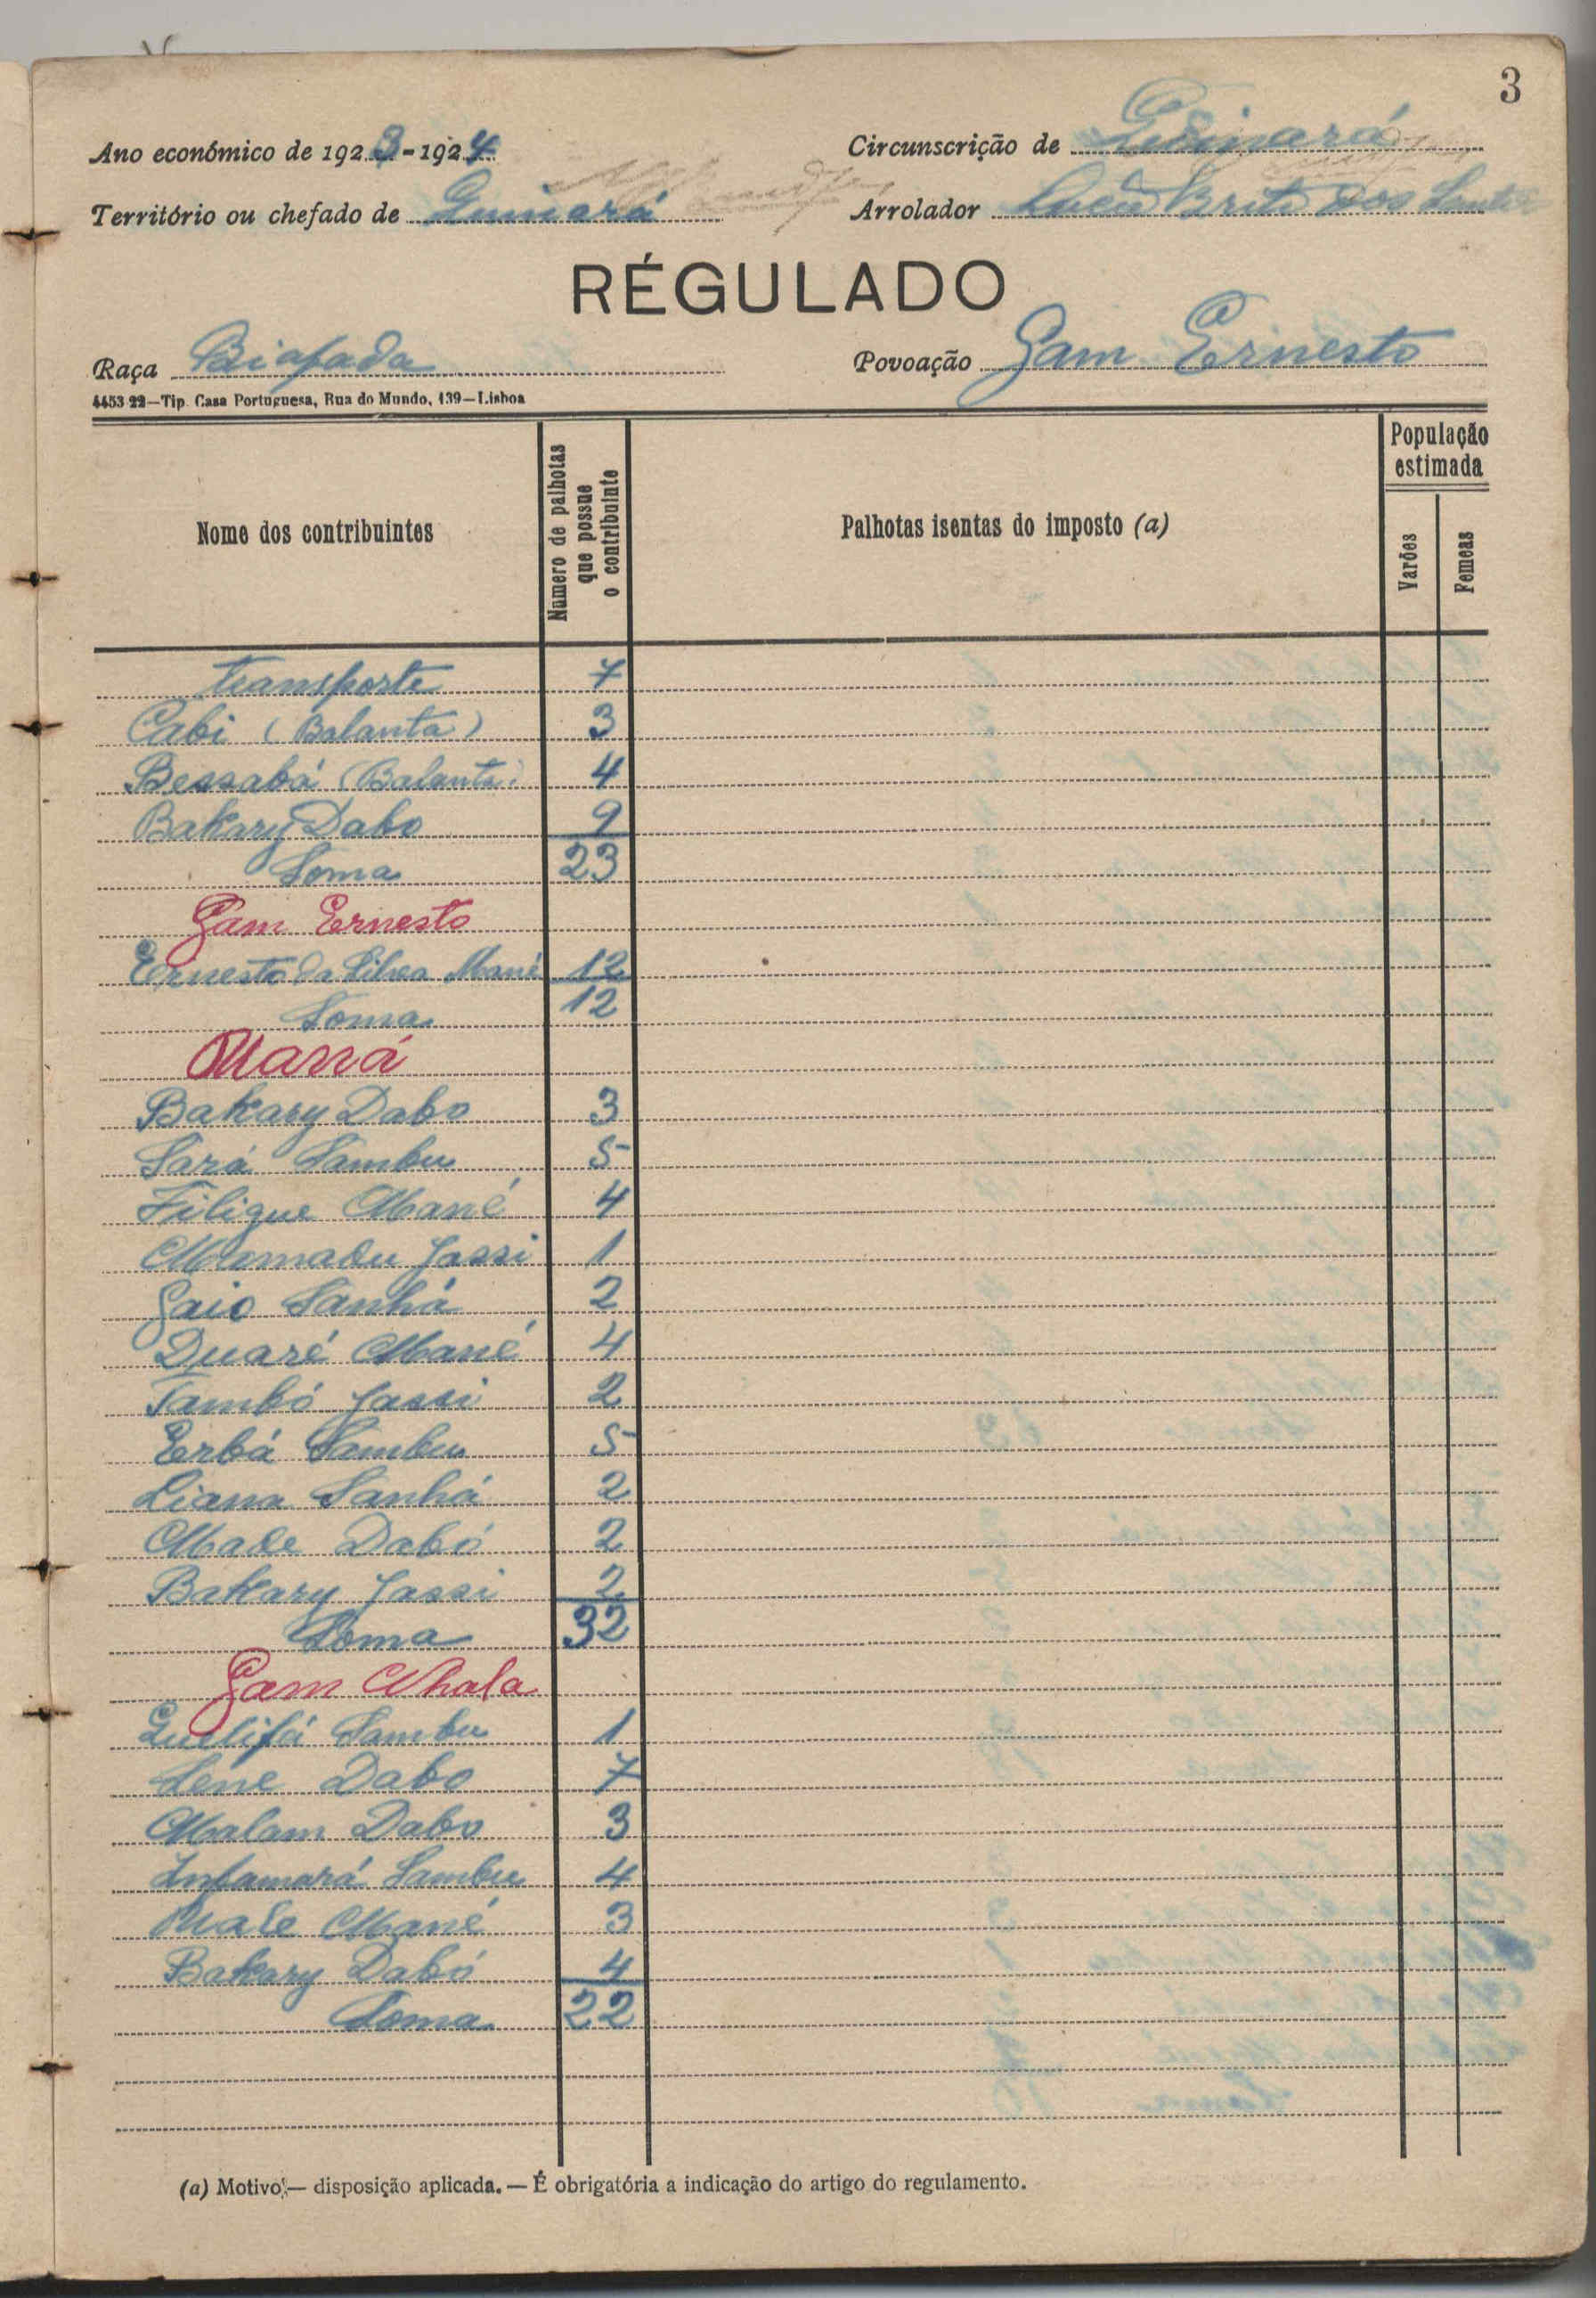 3
Ano económico de 1923-1924 Circunscrição de
Território ou chefado de Guinará Arrolador Brito dos Santos
RÉGULADO
Raça Biafada Povoação Gam Ernesto
4453 22—Tip. Casa Portuguesa, Rua do Mundo, 139—Lisboa
Nome dos contribuintes Número de palhotas que possue o contribuinte Palhotas isentas do imposto (a) População estimada Varões Femeas
Transporte 7
Cabi (Balanta) 3
Bessabá (Balanta) 4
Bakary Dabo 9
Soma 23
Gam Ernesto
Ernesto da Silva Mané 12
Soma 12
Maná
Bakary Dabo 3
Sará Sambu 5
Filique Mané 4
Momadu Jassi 1
Gaio Sanhá 2
Duaré Mané 4
Tambó Jassi 2
Erbá Sambu 5
Liana Sanhá 2
Made Dabó 2
Bakary Jassi 2
Soma 32
Gam Nhala
Quelifá Sambu 1
Lene Dabo 7
Malam Dabo 3
Infamará Sambu 4
Mané 3
Bakary Dabó 4
Soma 22
(a) Motivo — disposição aplicada. — É obrigatória a indicação do artigo do regulamento.